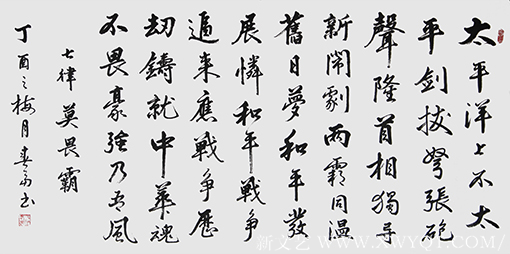 太平洋上不太
平劍拔弩張砲
聲隆首相獨导
新鬧劇兩霸同温
舊日夢和平發
展憐和平戰争
逼来應戰争歷
劫鑄就中華魂
不畏豪強乃吾風
七律 莫畏霸
丁酉之梅月春书
新文艺